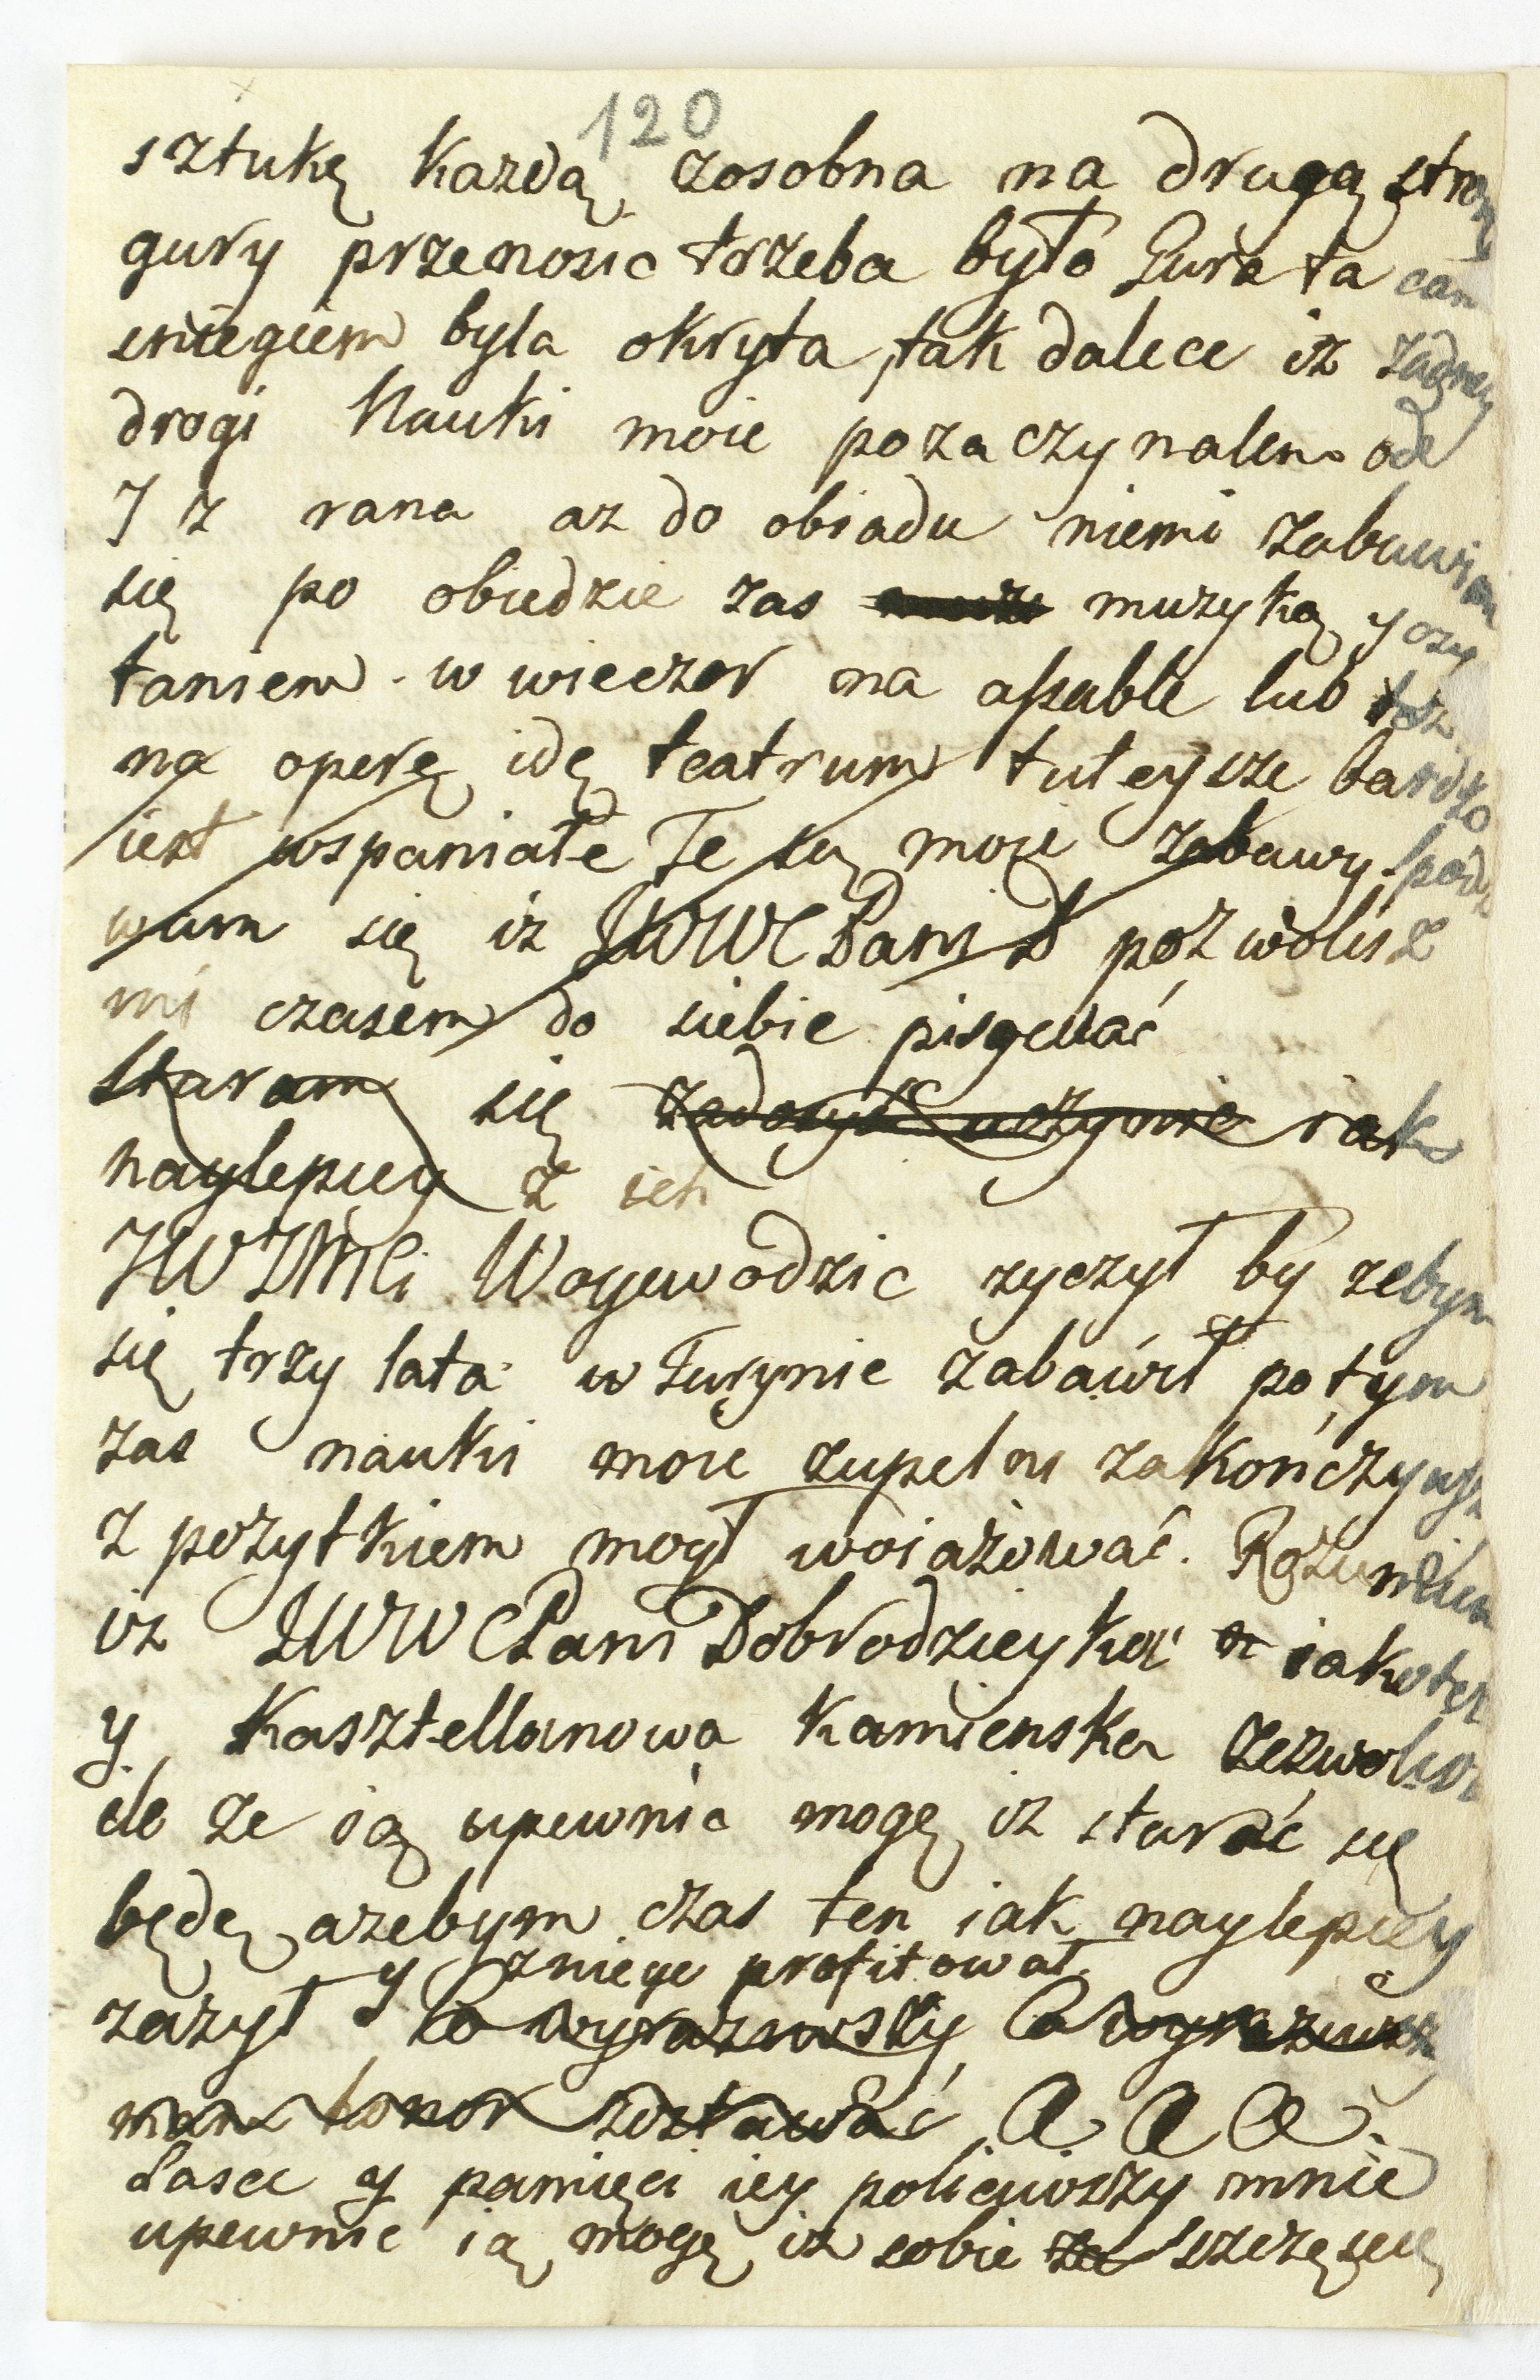 120
sztukę kazdą zosobna na drugą stronę
gury przenosic trzeba było Gura ta cała
sniegiem byla okryta, tak dalece iz zadney
drogi Nauki moie pozaczynalem od
7 z rana az do obiadu niemi zabawiam
się po obiedzie zas muzyką y czy
taniem w wieczor na assable lub tez
na operę idę teatrum tuteysze bardzo
iest wspaniałe Te są moie zabawy spodzi
wam się iz JWWCPani D pozwolisz
mi czasem do siebie pisywać
staram się zadosyć uczynic iak
naylepiey z ich
JWJMCi Woyewodzic zyczył by zebym
się trzy lata w Turynie zabawił potym
zas nauki moie zupelni zakończywszy
z pozytkiem mogł woiażować. Rozumiem
iz JWWCPani Dobrodzieyka iakotez
y Kasztellanowa Kamienska zezwolisz
ile ze ią upewnic mogę iz starać się
będę azebym czas ten iak naylepiey
y zniego profitował
zazył Co wyraziwszy Co wyraziwsz
mam honor zostawać
Łasce y pamięci iey policiwszy mnie
upewnic ią mogę iz sobie za szczęscie